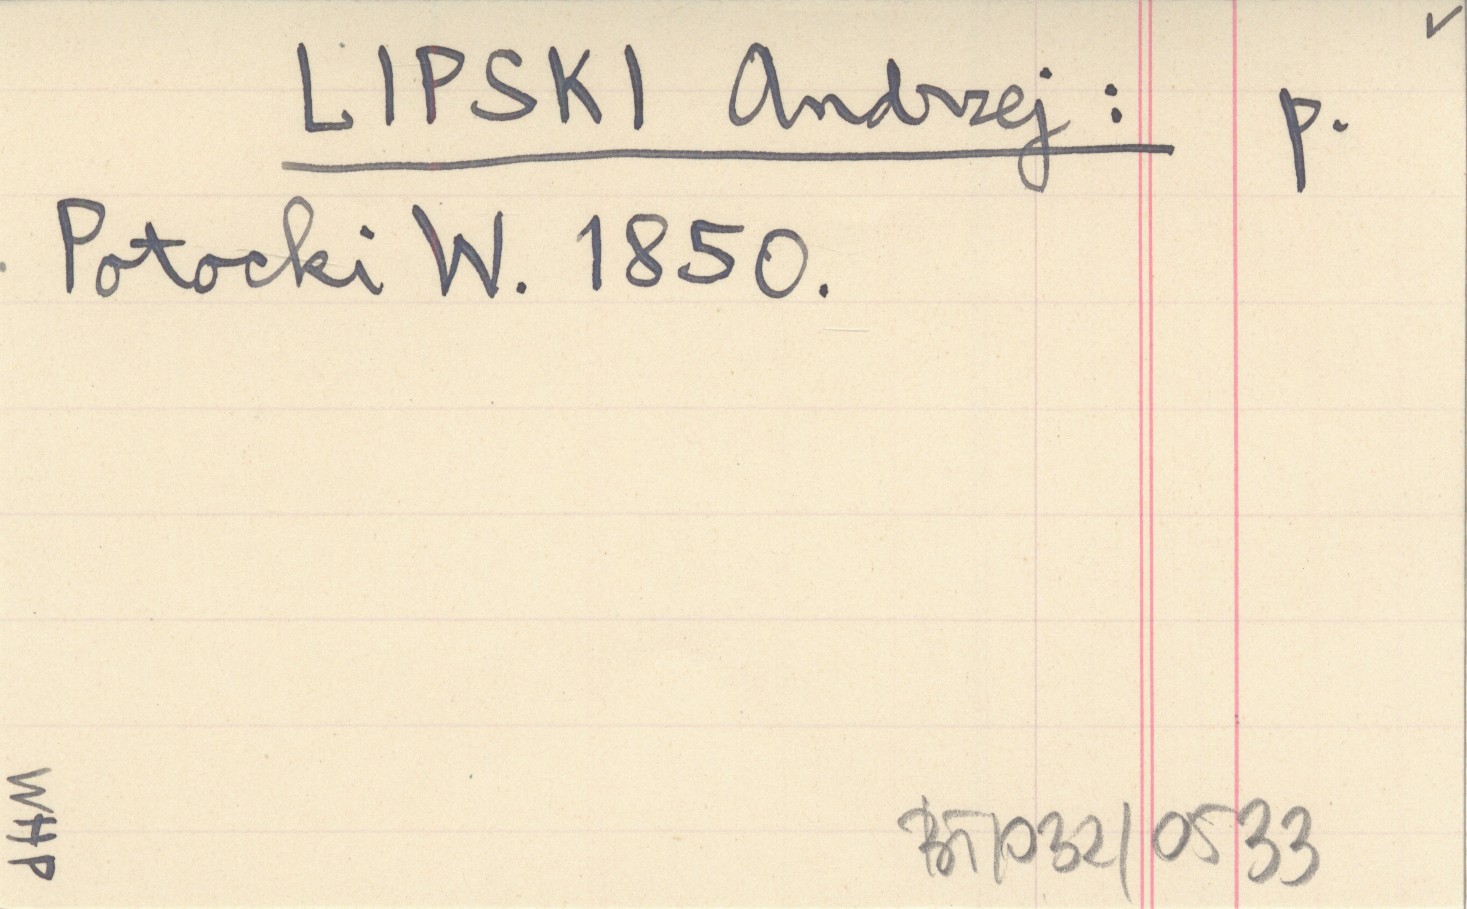 LIPSKI Andrzej: p.
Potocki W. 1850.
WHP
/032/0533